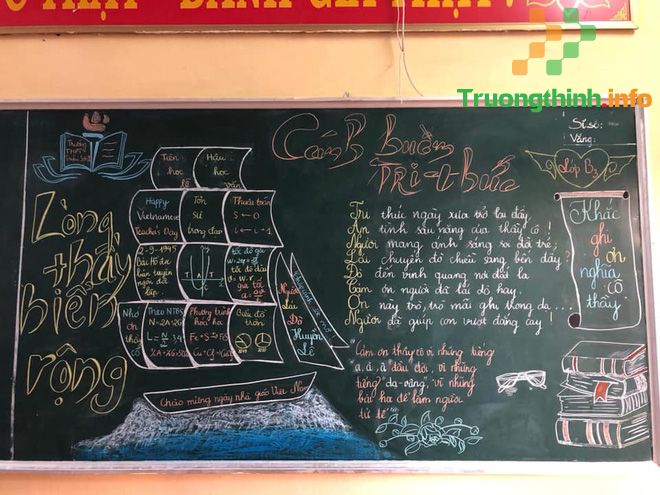 Truongthinh.info
Cánh buồm
Tri-thức
Sĩ số:
Vắng:
Lớp B3
Trường
THPT
Tiên
học
lễ
Hậu
học
văn
Happy
Vietnamese
Teacher's Day
Tôn
sư
trọng đạo
Thuật toán
S ← 0
i ← i + 1
2-9-1945
Bác Hồ đọc
bản tuyên
ngôn độc
lập
tốc độ góc
tốc độ dài
gia tốc
Nhớ
ơn
thầy
cô
Theo NTBS
Phương trình
hóa học
Fe + S → FeS
Biểu đồ
tròn
Lòng
thầy
biển
rộng
Người
lái
đò
Chào mừng ngày nhà giáo Việt Nam
Tri thức ngày xưa trở lại đây,
Ân tình sâu nặng của thầy cô!
Người mang ánh sáng soi đời trẻ;
Lái chuyến đò chiều sang bến đây?
Đò đến vinh quang nơi đất lạ
Cảm ơn người đã lái đò hay.
Ơn này trò, trò mãi ghi trong dạ...
Người đã giúp con vượt đắng cay!
Cảm ơn thầy cô vì những tiếng
"a, ă, â" đầu đời, vì những
tiếng "dạ-vâng", vì những
bài học để làm người
tử tế
Khắc
ghi
ơn
nghĩa
cô
thầy